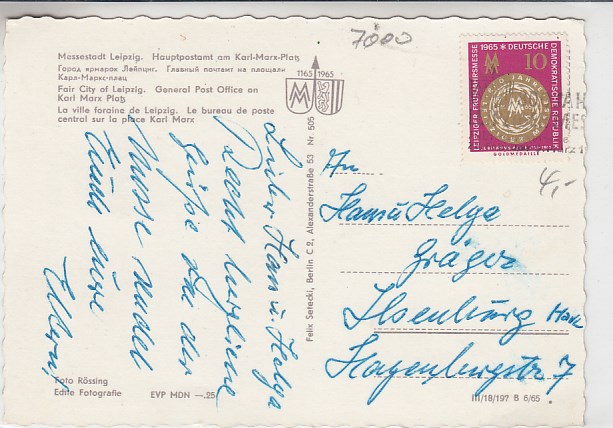 7000
Messestadt Leipzig. Hauptpostamt am Karl-Marx-Platz
Город ярмарок Лейпциг. Главный почтамт на площади
Карл-Маркс-плац
Fair City of Leipzig. General Post Office on
Karl Marx Platz
La ville foraine de Leipzig. Le bureau de poste
central sur la place Karl Marx
1165 1965
LEIPZIGER FRÜHJAHRSMESSE 1965 * DEUTSCHE DEMOKRATISCHE REPUBLIK
10
GOLDMEDAILLE
4,-
Lieber Hans u. Helga
Recht herzliche
Grüße von der
Messe
Eure
Eltern!
Felix Setecki, Berlin C 2, Alexanderstraße 53 Nr. 505
An
Hans u Helga
Gräger
Ilsenburg Harz
Hagenbergstr 7
Foto Rössing
Edite Fotografie
EVP MDN —.25
III/18/197 B 6/65